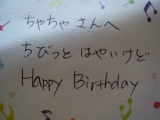 ちゃちゃ さんへ
ちびっと はやいけど
Happy Birthday